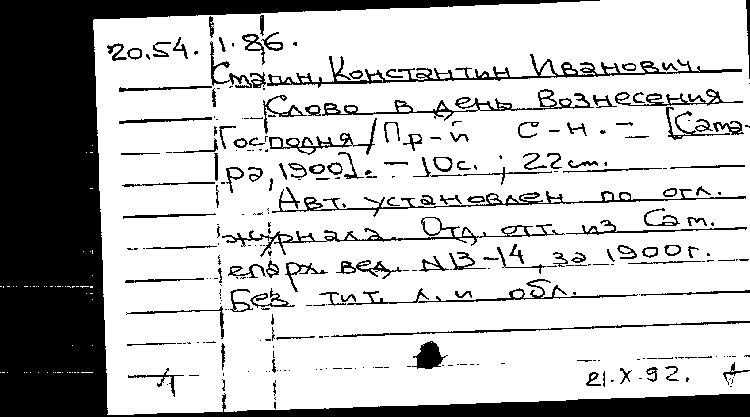 20.54. 1.86.
Смагин, Константин Иванович.
Слово в день Вознесения
Господня / Пр-й С-н. – [Сама-
ра, 1900]. – 10с. ; 22см.
Авт. установлен по огл.
журнала. Отд. отт. из Сам.
епарх. вед. N13-14, за 1900г.
Без тит. л. и обл.
21.X.92.